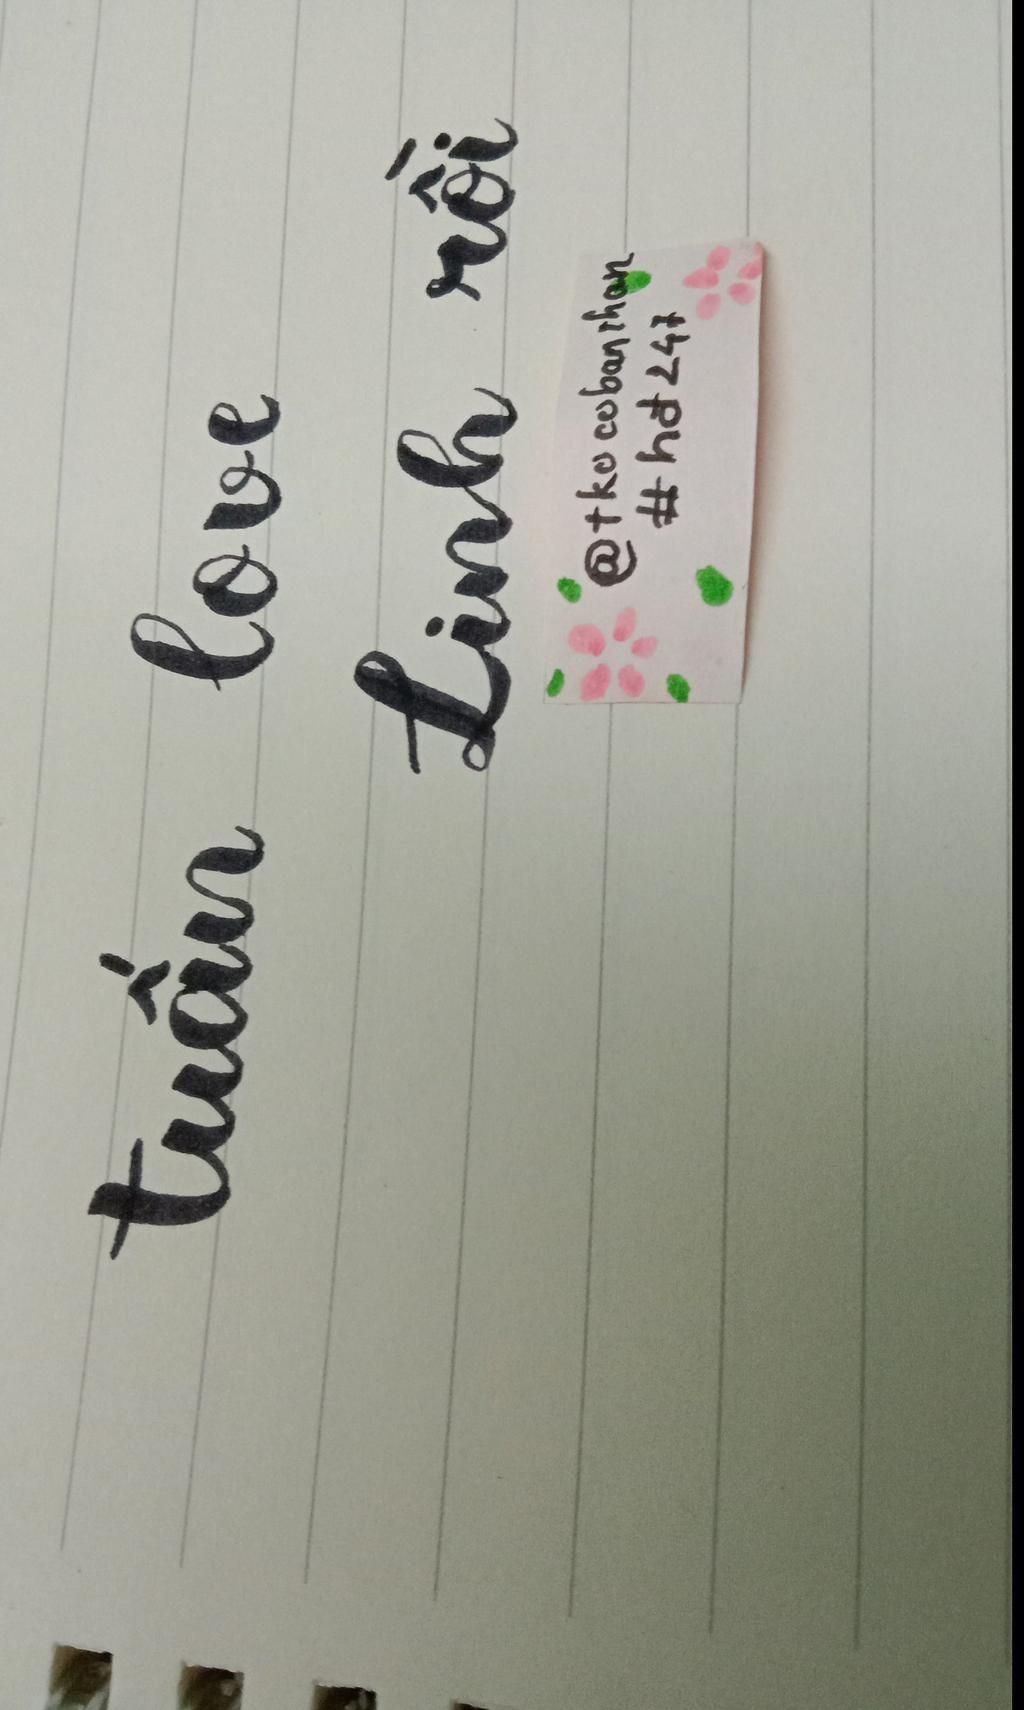 tuấn love
Linh rồi
@tkocobanthan
#hd247